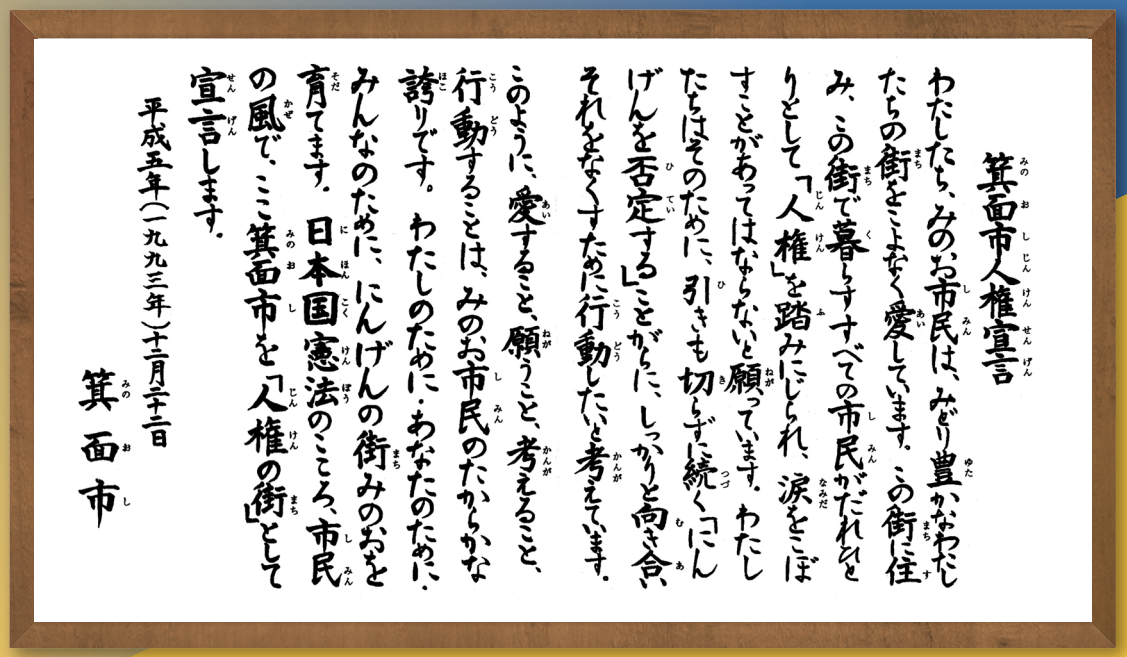 箕面市人権宣言
わたしたち、みのお市民は、みどり豊かなわたし
たちの街をこよなく愛しています。この街に住
み、この街で暮らすすべての市民がだれひと
りとして「人権」を踏みにじられ、涙をこぼ
すことがあってはならないと願っています。わたし
たちはそのために、引きも切らずに続く「にん
げんを否定する」ことがらに、しっかりと向き合い
それをなくすために行動したいと考えています。
このように、愛すること、願うこと、考えること、
行動することは、みのお市民のたからかな
誇りです。わたしのために・あなたのために・
みんなのために、にんげんの街みのおを
育てます。日本国憲法のこころ、市民
の風で、ここ箕面市を「人権の街」として
宣言します。
平成五年(一九九三年)十二月二十二日
箕面市